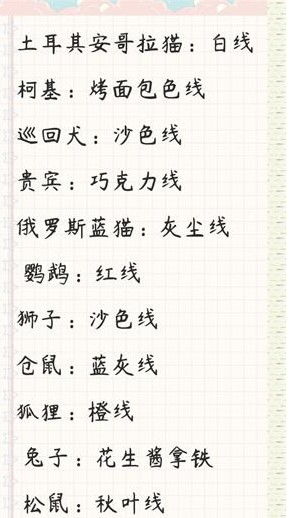 土耳其安哥拉猫：白线
柯基：烤面包色线
巡回犬：沙色线
贵宾：巧克力线
俄罗斯蓝猫：灰尘线
鹦鹉：红线
狮子：沙色线
仓鼠：蓝灰线
狐狸：橙线
兔子：花生酱拿铁
松鼠：秋叶线